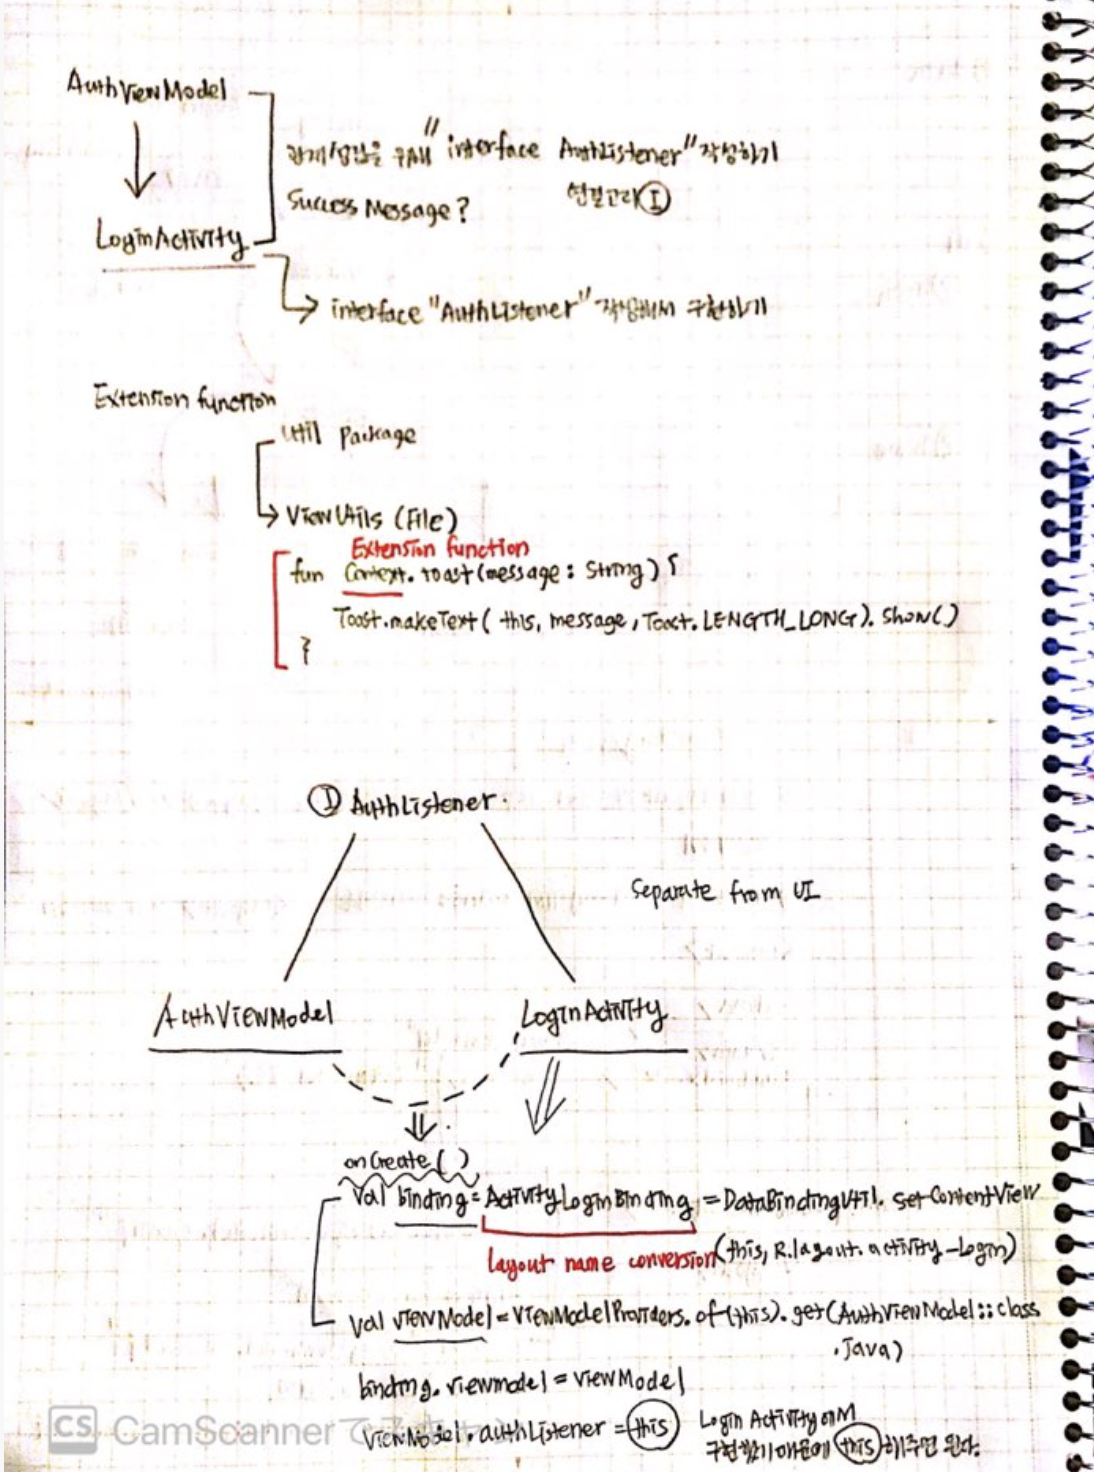 AuthViewModel
"interface AuthListener" 작성하기
Success Message? 연결고리 ①
LoginActivity
interface "AuthListener" 작성해서 구현하기
Extension function
util package
ViewUtils (File)
Extension function
fun Context.toast(message: String) {
Toast.makeText( this, message, Toast.LENGTH_LONG). show()
}
① AuthListener.
Separate from UI
AuthViewModel LoginActivity
onCreate( )
val binding = ActivityLoginBinding = DataBindingUtil. setContentView
layout name conversion (this, R.layout. activity_login)
val viewModel = ViewModelProviders. of(this). get(AuthViewModel::class
.java)
binding. viewmodel = viewModel
viewModel. authListener = this Login Activity에서
구현했기 때문에 this 해주면 된다.
CS CamScanner